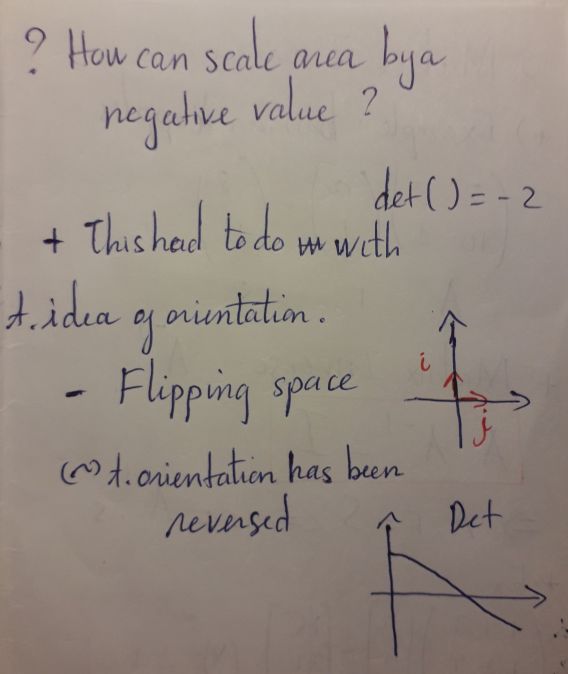 ? How can scale area by a
negative value ?
det( ) = - 2
+ This had to do with
t. idea of orientation.
i
- Flipping space
j
(~) t. orientation has been
reversed
Det